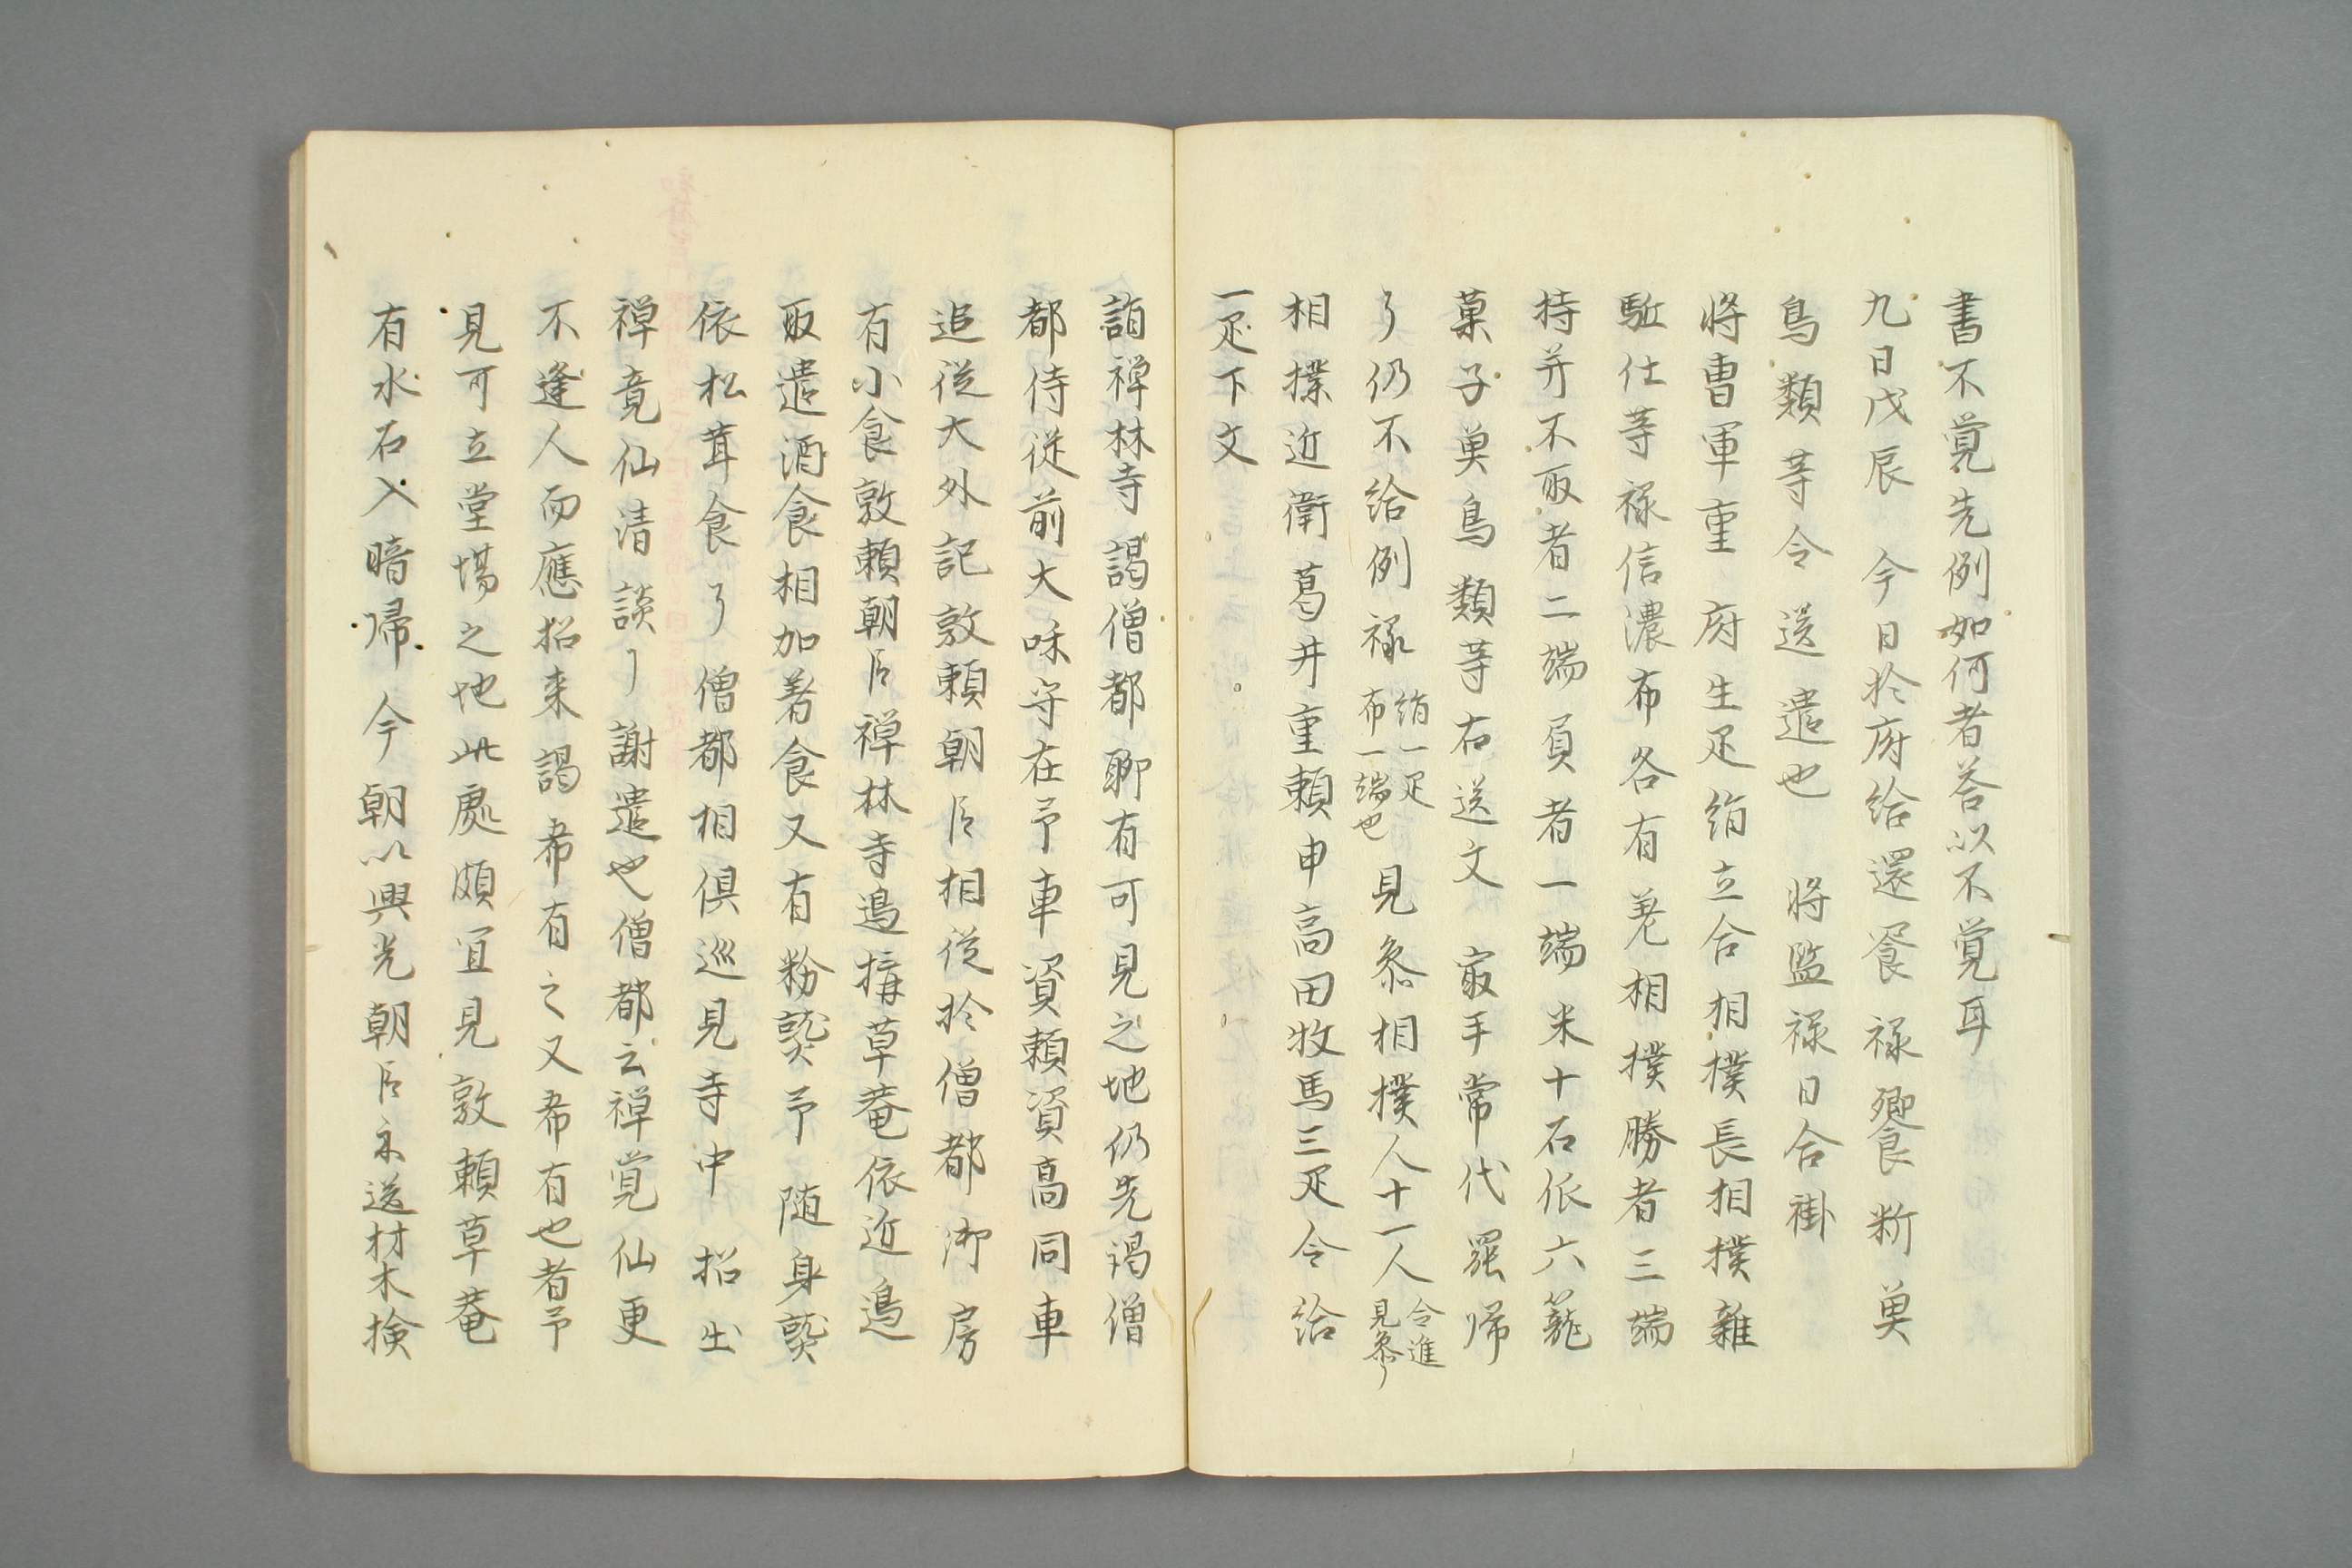 書不覚先例如何者答以不覚耳
九日戊辰 今日於府給還饗禄饗新菓
鳥類等令送遣也 将監禄日合褂
将曹軍重府生疋絹立合相撲長相撲雑
駈仕等禄信濃布各有差相撲勝者三端
持并不取者二端負者一端米十石依六籠
菓子菓鳥類等右送文 最手常代罷帰
了仍不給例禄絹一疋布一端也見参相撲人十一人令進見参了
相撲近衛葛井重頼申高田牧馬三疋令給
一疋下文
詣禅林寺謁僧都聊有可見之地仍先謁僧
都侍従前大和守在予車資頼資高同車
追従大外記敦頼朝臣相従於僧都御房
有小食敦頼朝臣禅林寺邊搆草菴依近邊
取遣酒食相加著食又有粉熟予随身熟
依松茸食了僧都相倶巡見寺中招出
禅竟仙清談了謝遣也僧都云禅覚仙更
不逢人而應招来謁希有之又希有也者予
見可立堂場之地此處頗宜見敦頼草菴
有水石入暗帰 今朝以興光朝臣永送材木検